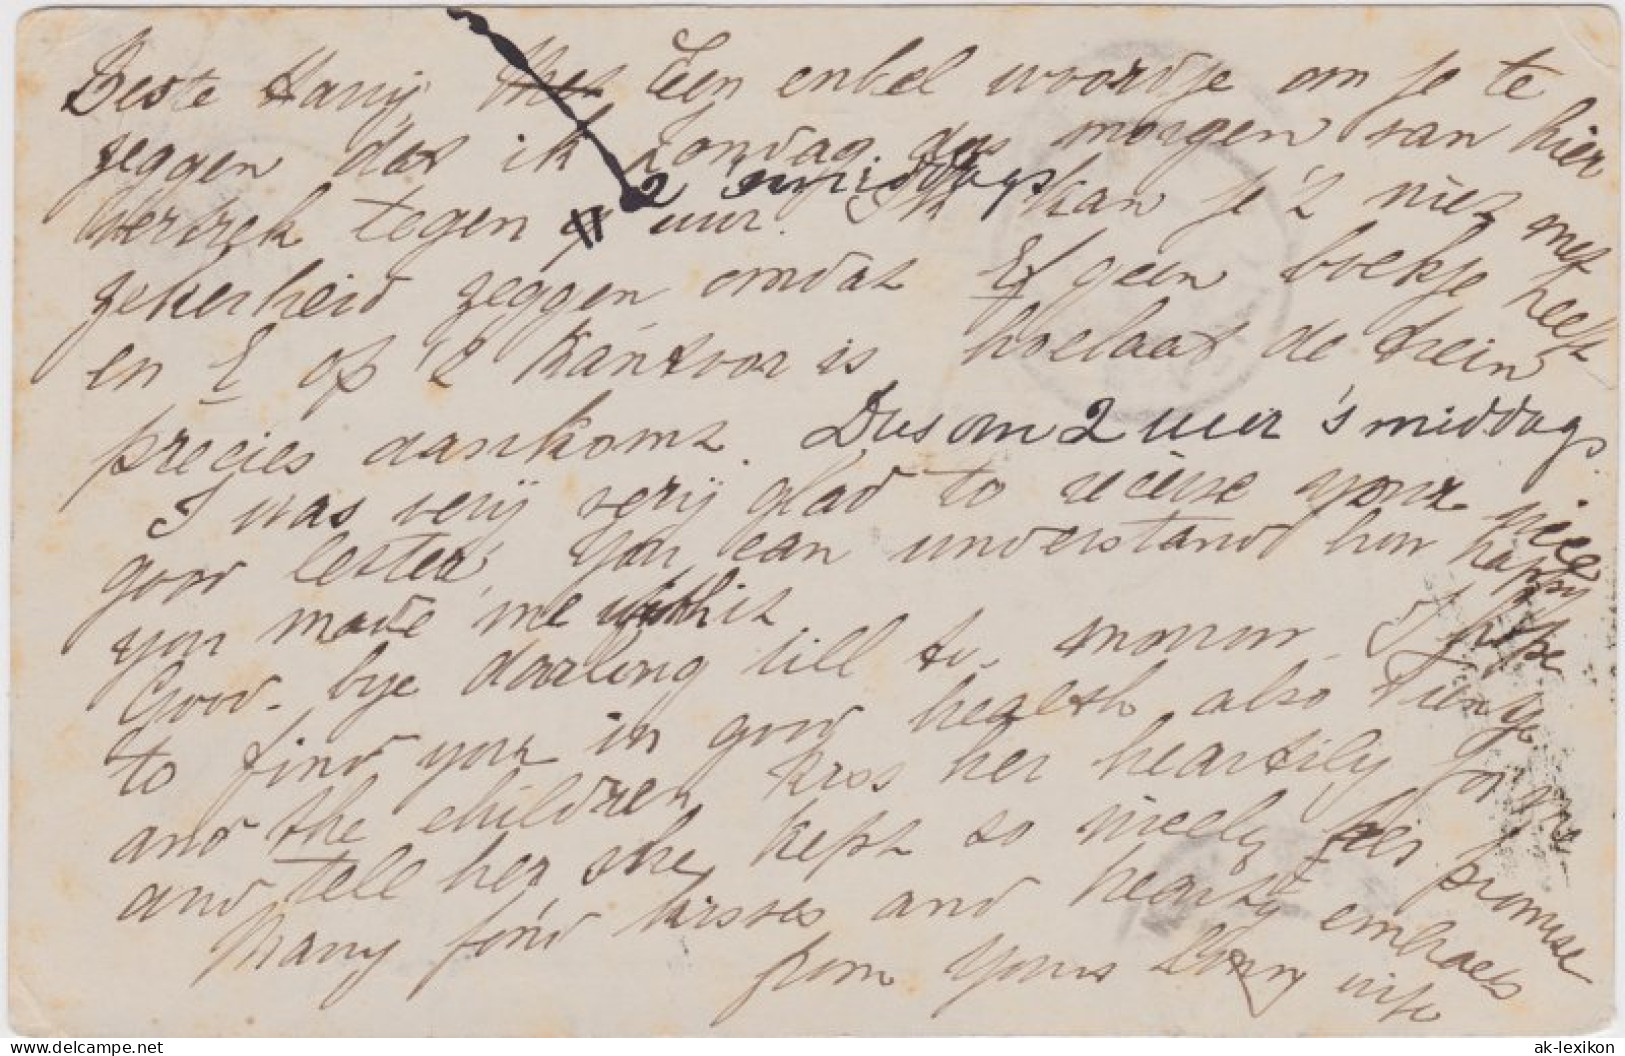 Beste Harry Een enkel woordje om je te
zeggen dat ik Zondag morgen van hier
vertrek tegen 2 uur 'smiddags. Ik kan je 't niet met
zekerheid zeggen omdat E geen boekje heeft
en E op 't kantoor is hoelaat de trein
precies aankomt. Dus om 2 uur 's middags.
I was very very glad to receive your nice
good letter. You can understand how happy
you made me with it
Good-bye darling till to-morrow. I hope
to find you in good health also Tuusje
and the children, kiss her heartily for me
and tell her she kept so nicely her promise
Many fond kisses and hearty embraces
from Yours wife
delcampe.net
ak-lexikon